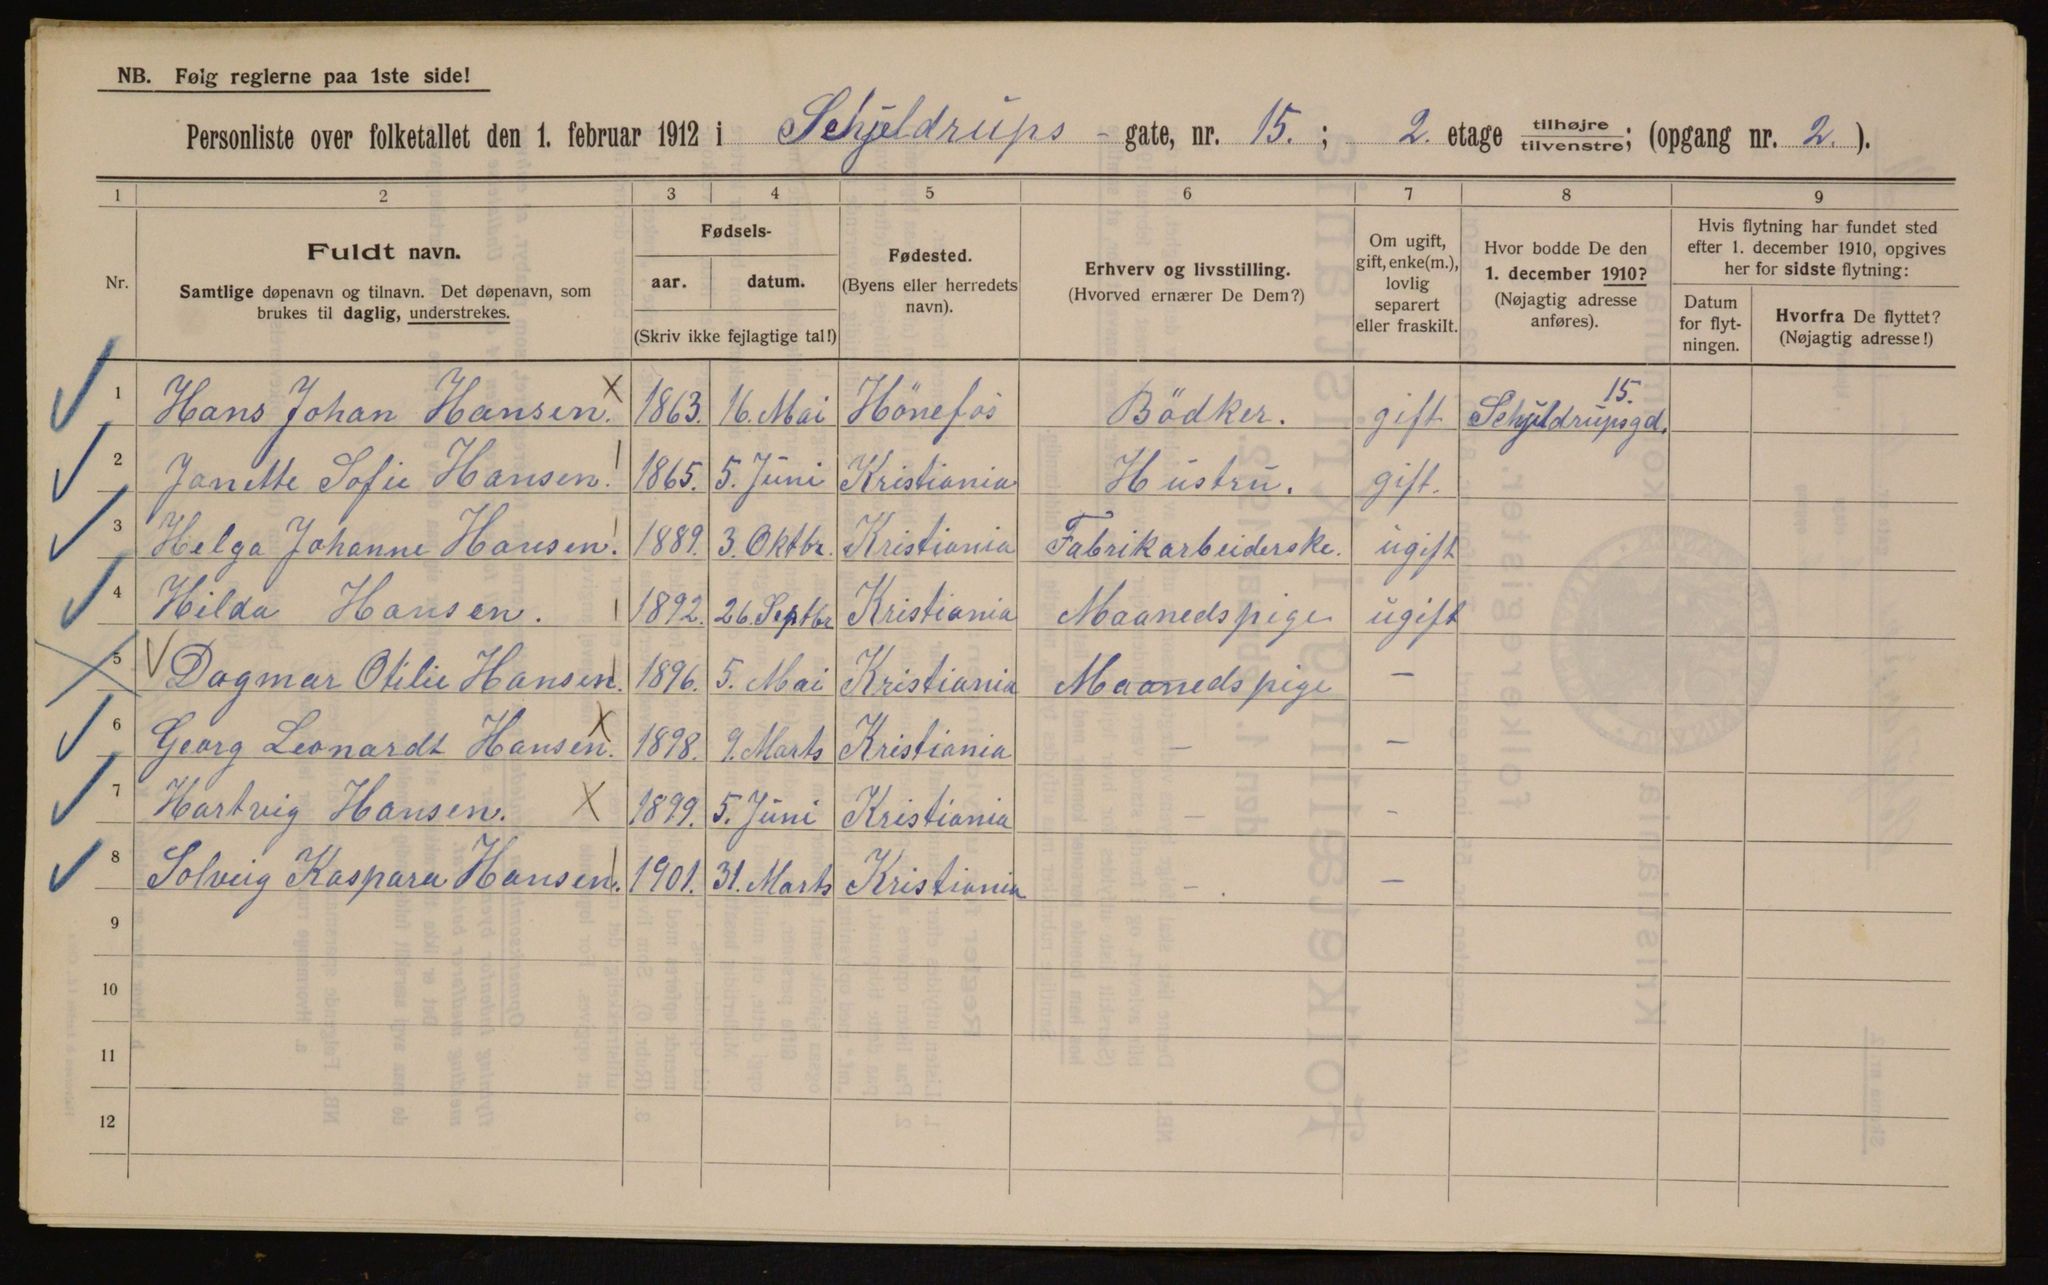 NB. Følg reglerne paa 1ste side!
Personliste over folketallet den 1. februar 1912 i Schjeldrups - gate, nr. 15. ; 2. etage tilhøjre tilvenstre; (opgang nr. 2. ).
1 2 3 4 5 6 7 8 9
Nr.
Fuldt navn.
Samtlige døpenavn og tilnavn. Det døpenavn, som
brukes til daglig, understrekes.
Fødsels-
aar. datum.
(Skriv ikke fejlagtige tal!)
Fødested.
(Byens eller herredets
navn).
Erhverv og livsstilling.
(Hvorved ernærer De Dem?)
Om ugift,
gift, enke(m.),
lovlig
separert
eller fraskilt.
Hvor bodde De den
1. december 1910?
(Nøjagtig adresse
anføres).
Hvis flytning har fundet sted
efter 1. december 1910, opgives
her for sidste flytning:
Datum
for flyt-
ningen.
Hvorfra De flyttet?
(Nøjagtig adresse!)
1 Hans Johan Hansen. 1863. 16. Mai Hönefos Bödker. gift 15. Schjeldrupsgd.
2 Janette Sofie Hansen. 1865. 5. Juni Kristiania Hustru. gift.
3 Helga Johanne Hansen. 1889. 3. Oktbr. Kristiania Fabrikarbeiderske. ugift
4 Hilda Hansen. 1892. 26. Septbr Kristiania Maanedspige ugift
5 Dagmar Otilie Hansen. 1896. 5. Mai Kristiania Maanedspige —
6 Georg Leonardt Hansen. 1898. 9. Marts Kristiania — —
7 Hartvig Hansen. 1899. 5. Juni Kristiania — —
8 Solveig Kaspara Hansen. 1901. 31. Marts Kristiania — . —
9
10
11
12